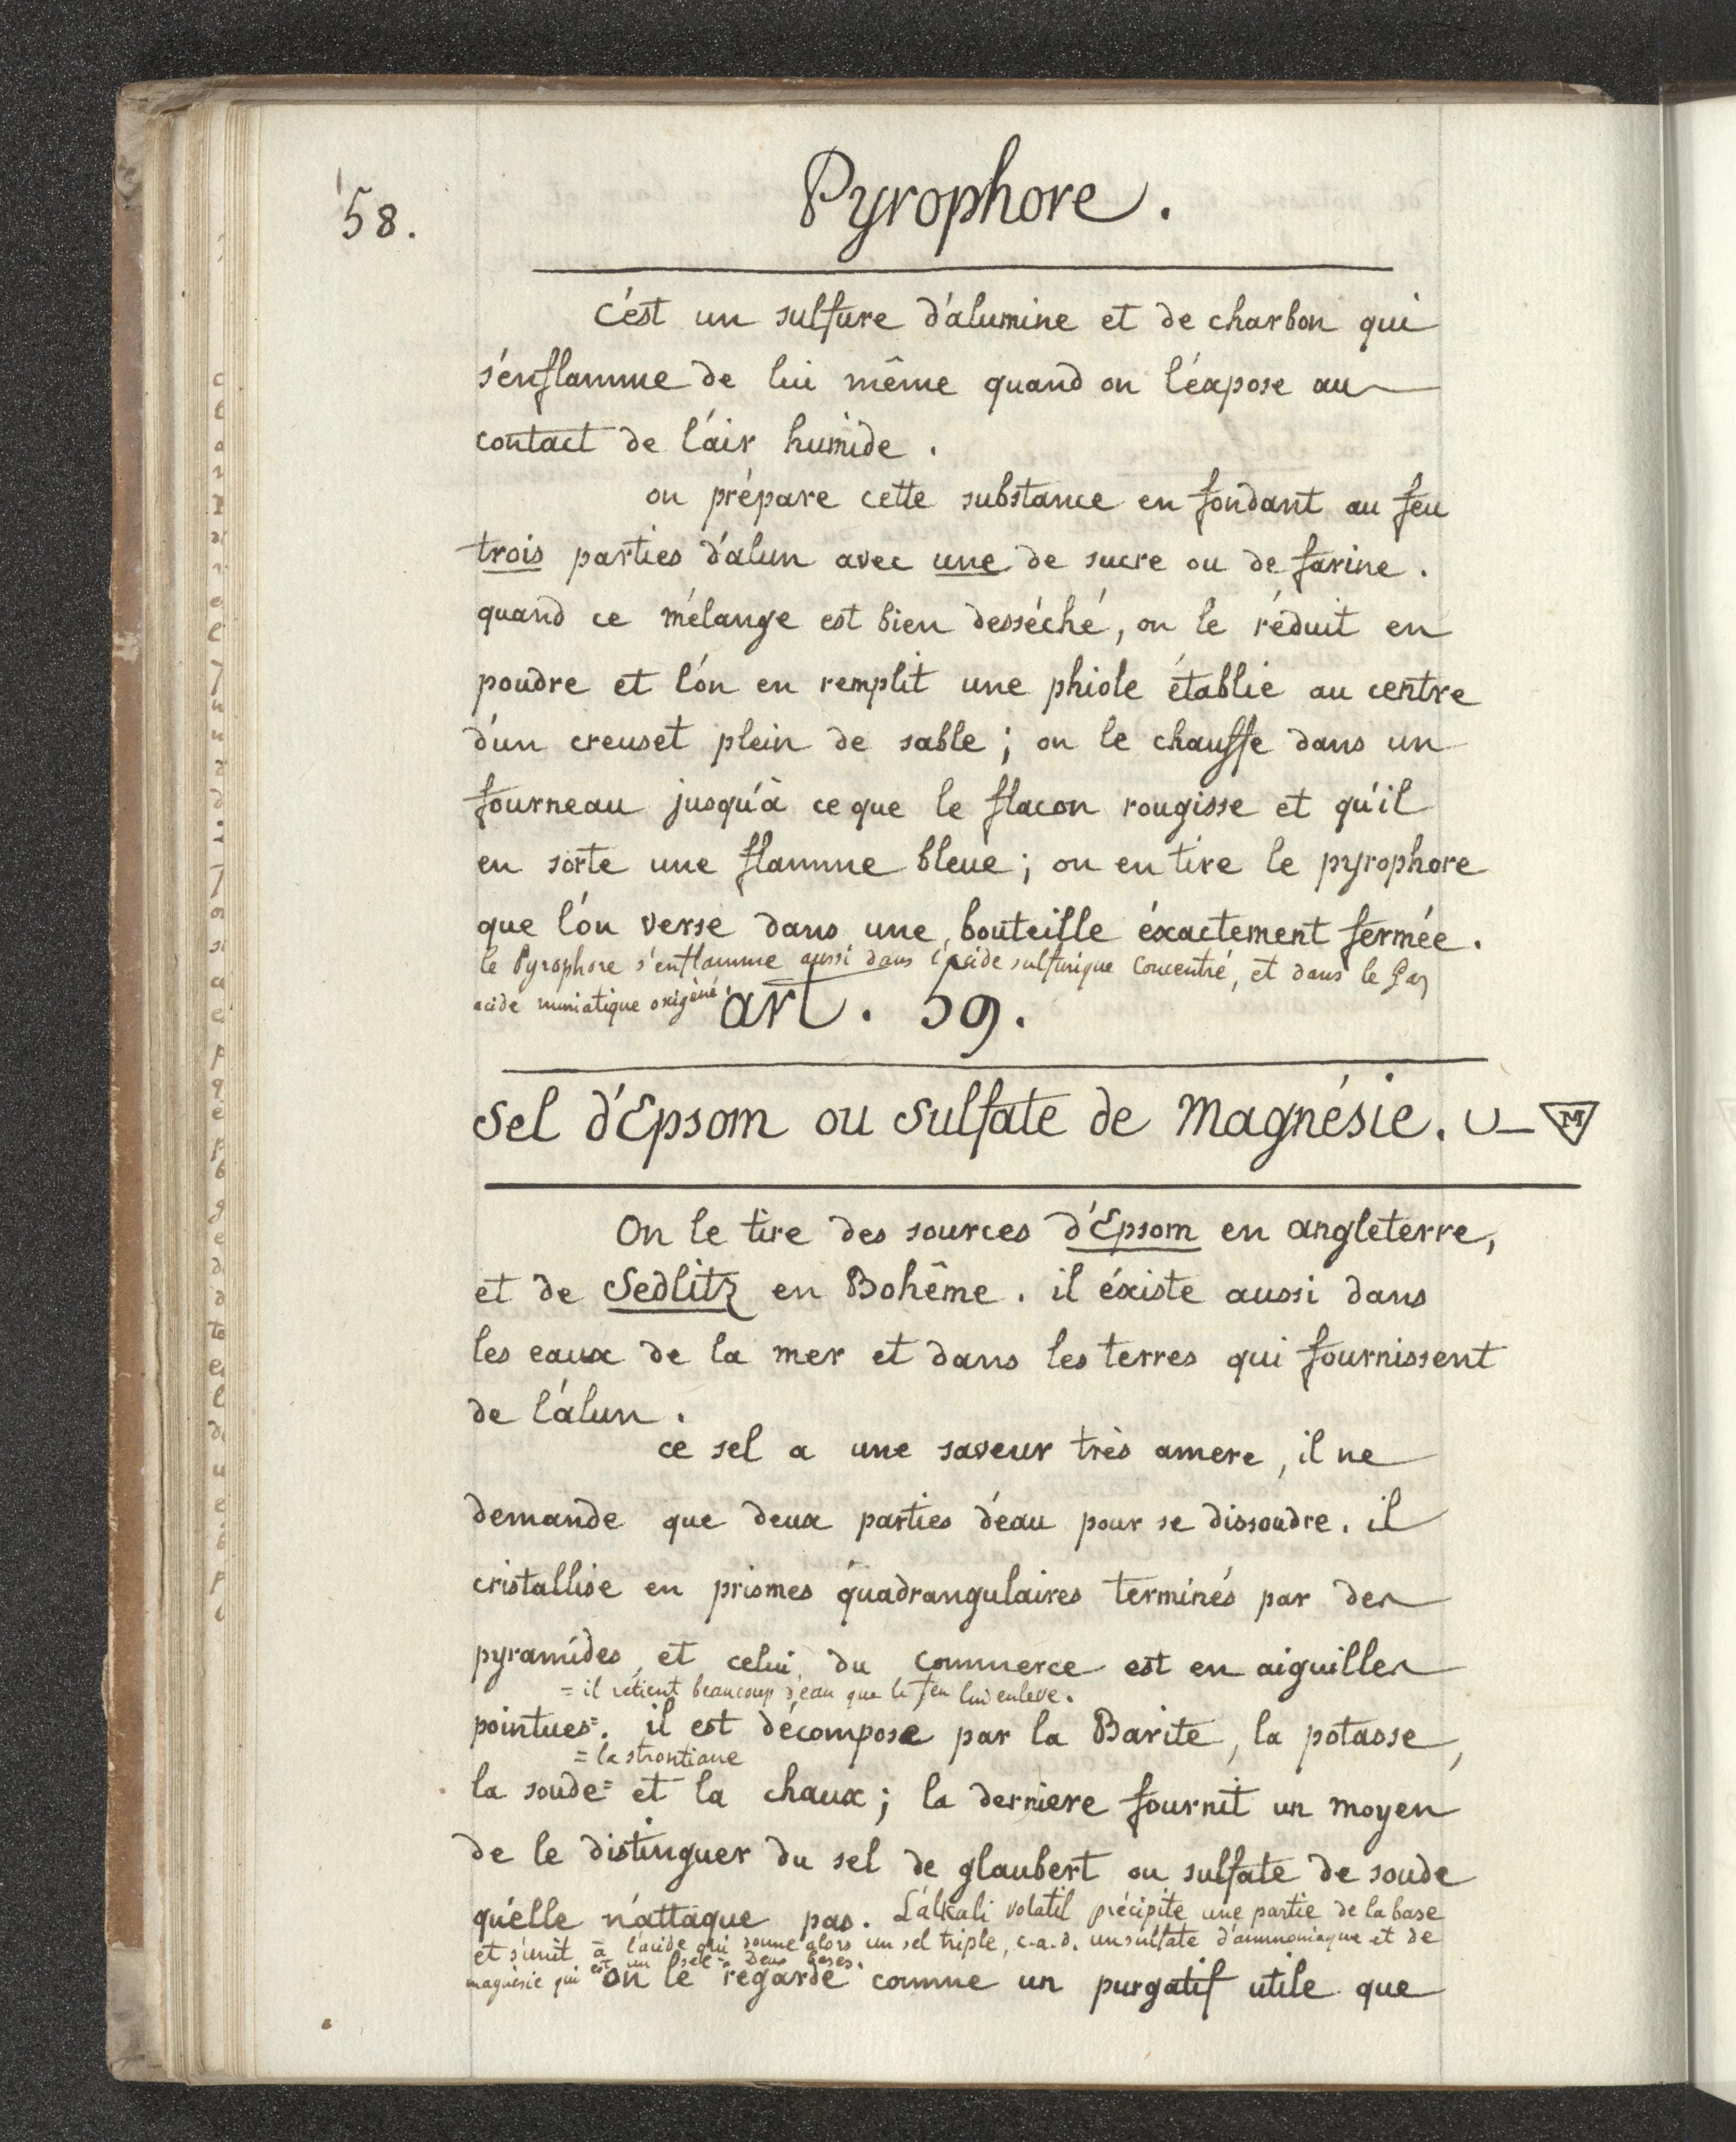 58.
Pyrophore.
c'est un sulfure d'alumine et de charbon qui
s'enflamme de lui même quand on l'éxpose au
contact de l'air humide.
on prépare cette substance en fondant au feu
trois parties d'alun avec une de sucre ou de farine.
quand ce mélange est bien desséché, on le réduit en
poudre et l'on en remplit une phiole établie au centre
d'un creuset plein de sable; on le chauffe dans un
fourneau jusqu'à ce que le flacon rougisse et qu'il
en sorte une flamme bleue; on en tire le pyrophore
que l'on verse dans une bouteille éxactement fermée.
le Pyrophore s'enflamme aussi dans l'acide sulfurique Concentré, et dans le Gaz
acide muriatique oxigèné.
art. 59.
Sel d'Epsom ou Sulfate de Magnésie. M
On le tire des sources d'Epsom en angleterre,
et de Sedlitz en Bohême. il éxiste aussi dans
les eaux de la mer et dans les terres qui fournissent
de l'alun.
ce sel a une saveur très amere, il ne
demande que deux parties d'eau pour se dissoudre. il
cristallise en prismes quadrangulaires terminés par des
pyramides, et celui du Commerce est en aiguilles
= il retient beaucoup d'eau que le feu lui enleve.
pointues=. il est décomposé par la Barite, la potasse,
= la strontiane
la soude= et la chaux; la derniere fournit un moyen
de le distinguer du sel de glaubert ou sulfate de soude
qu'elle n'attaque pas. L'alkali volatil précipite une partie de la base
et s'unit à l'acide qui donne alors un sel triple, c.a.d. un sulfate d'ammoniaque et de
magnèsie qui est un sel = Deux bases.
on le regarde comme un purgatif utile que